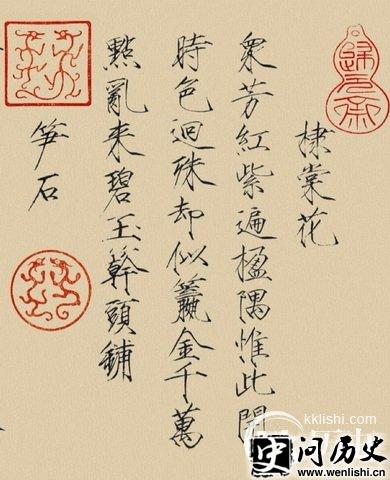 棣棠花
衆芳紅紫遍楹隅惟此開
時色迥殊却似籯金千萬
點亂来碧玉幹頭鋪
笋石
kklishi.com
问历史
www.wenlishi.cn